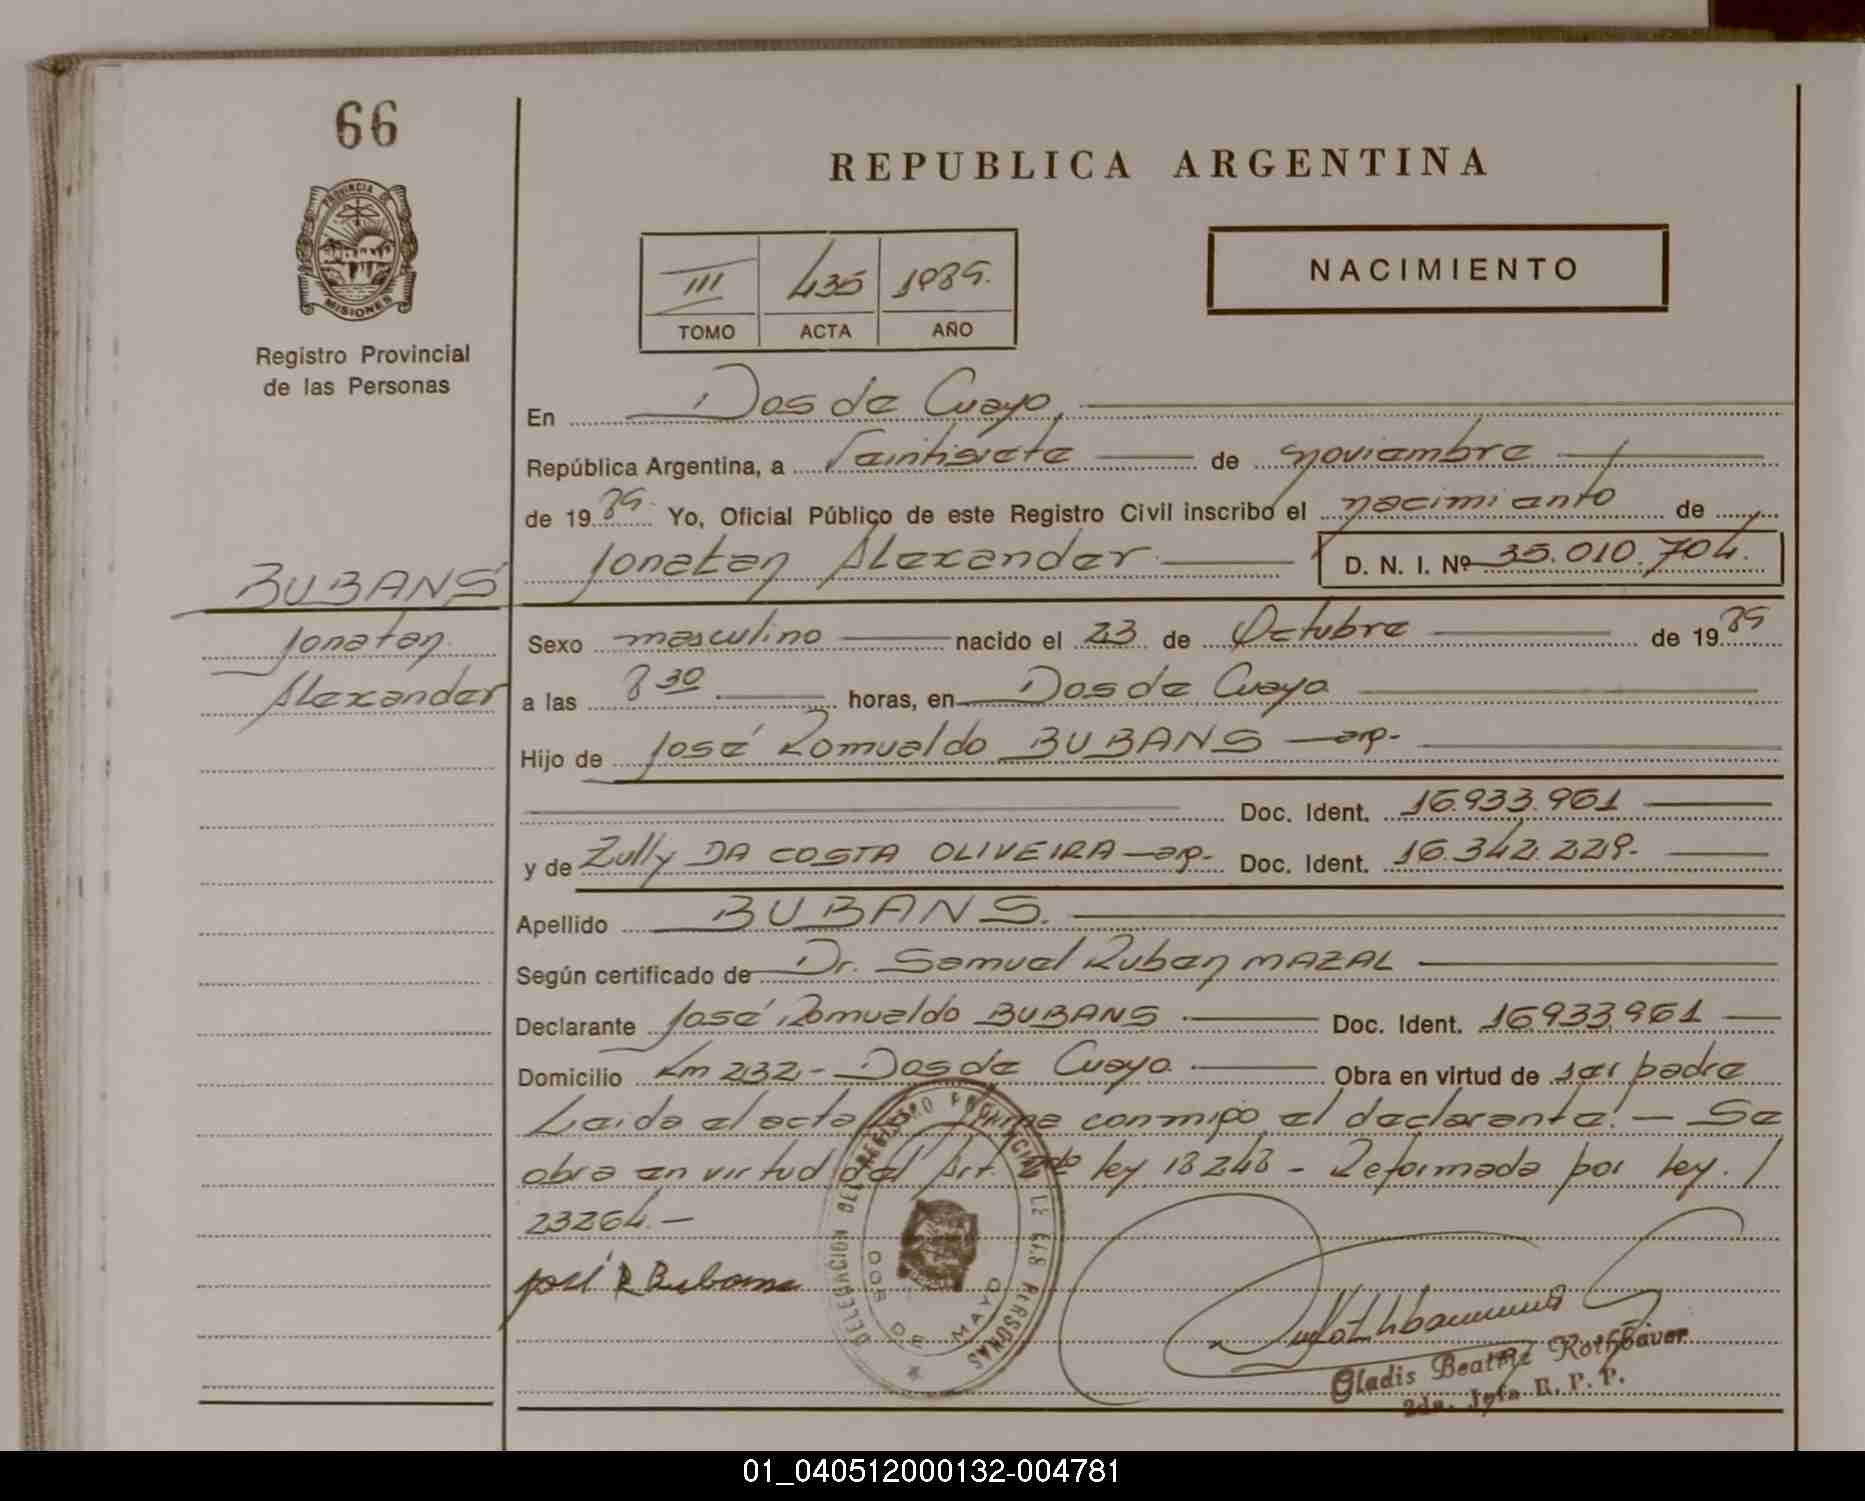 66
PROVINCIA DE
MISIONES
Registro Provincial
de las Personas
REPUBLICA ARGENTINA
NACIMIENTO
III 435 1989.
TOMO ACTA AÑO
En Dos de Mayo,
República Argentina, a Veintisiete de noviembre
de 1989. Yo, Oficial Público de este Registro Civil inscribo el nacimiento de
Jonatan Alexander D. N. I. Nº 35.010.704.
BUBANS
Jonatan
Alexander
Sexo masculino nacido el 23 de Octubre de 1989
a las 8 30 horas, en Dos de Mayo
Hijo de José Romualdo BUBANS - arg.-
Doc. Ident. 16.933.961
y de Zully DA COSTA OLIVEIRA - arg.- Doc. Ident. 16.342.229.
Apellido BUBANS.
Según certificado de Dr. Samuel Ruben MAZAL
Declarante José Romualdo BUBANS Doc. Ident. 16933961
Domicilio Km 232 - Dos de Mayo Obra en virtud de ser padre
Leida el acta firma conmigo el declarante. - Se
obra en virtud del Art. 2do ley 18248 - Reformada por ley
23264.-
José R Bubans
DELEGACION DEL REGISTRO PROVINCIAL DE LAS PERSONAS
DOS DE MAYO
Gladis Beatriz Rothbäuer
2da. Jefa R. P. P.
01_040512000132-004781